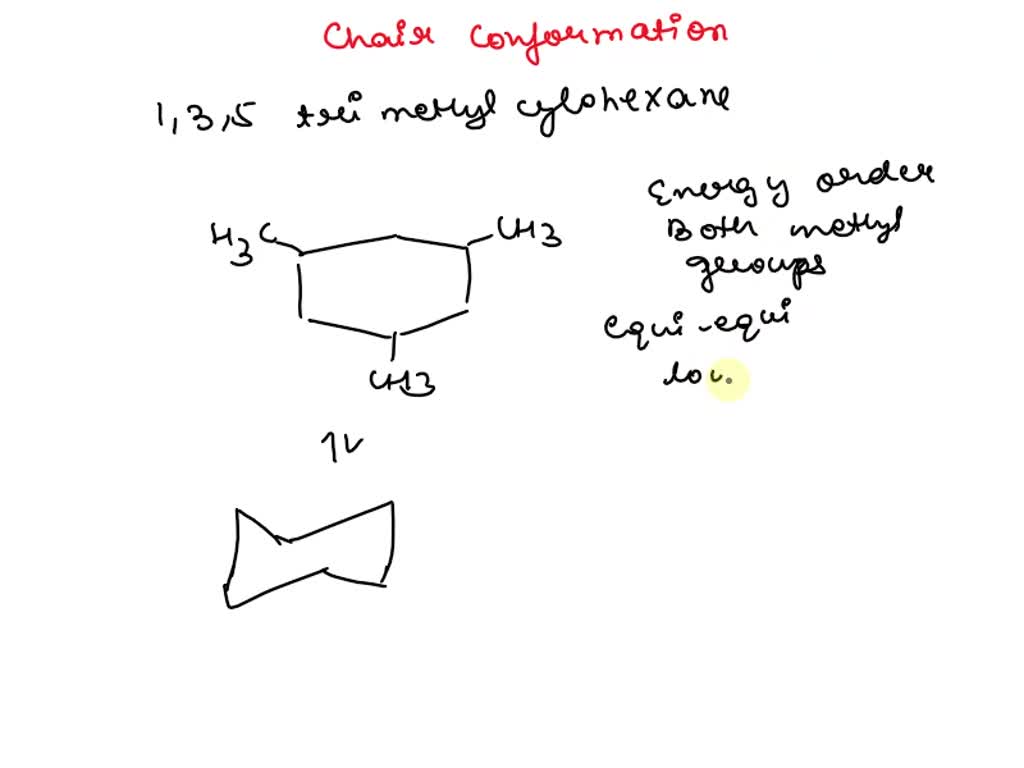 Chair Conformation
1,3,5 tri methyl cylohexane
Energy order
Both methyl
groups
H3C
CH3
equi-equi
low
CH3